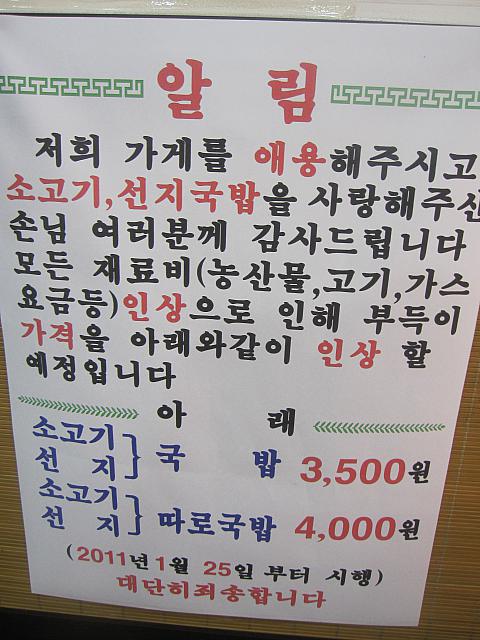 알 림
저희 가게를 애용해주시고
소고기,선지국밥을 사랑해주신
손님 여러분께 감사드립니다
모든 재료비(농산물,고기,가스
요금등)인상으로 인해 부득이
가격을 아래와같이 인상 할
예정입니다
아 래
소고기
선 지 } 국 밥 3,500원
소고기
선 지 } 따로국밥 4,000원
(2011년 1월 25일 부터 시행)
대단히죄송합니다